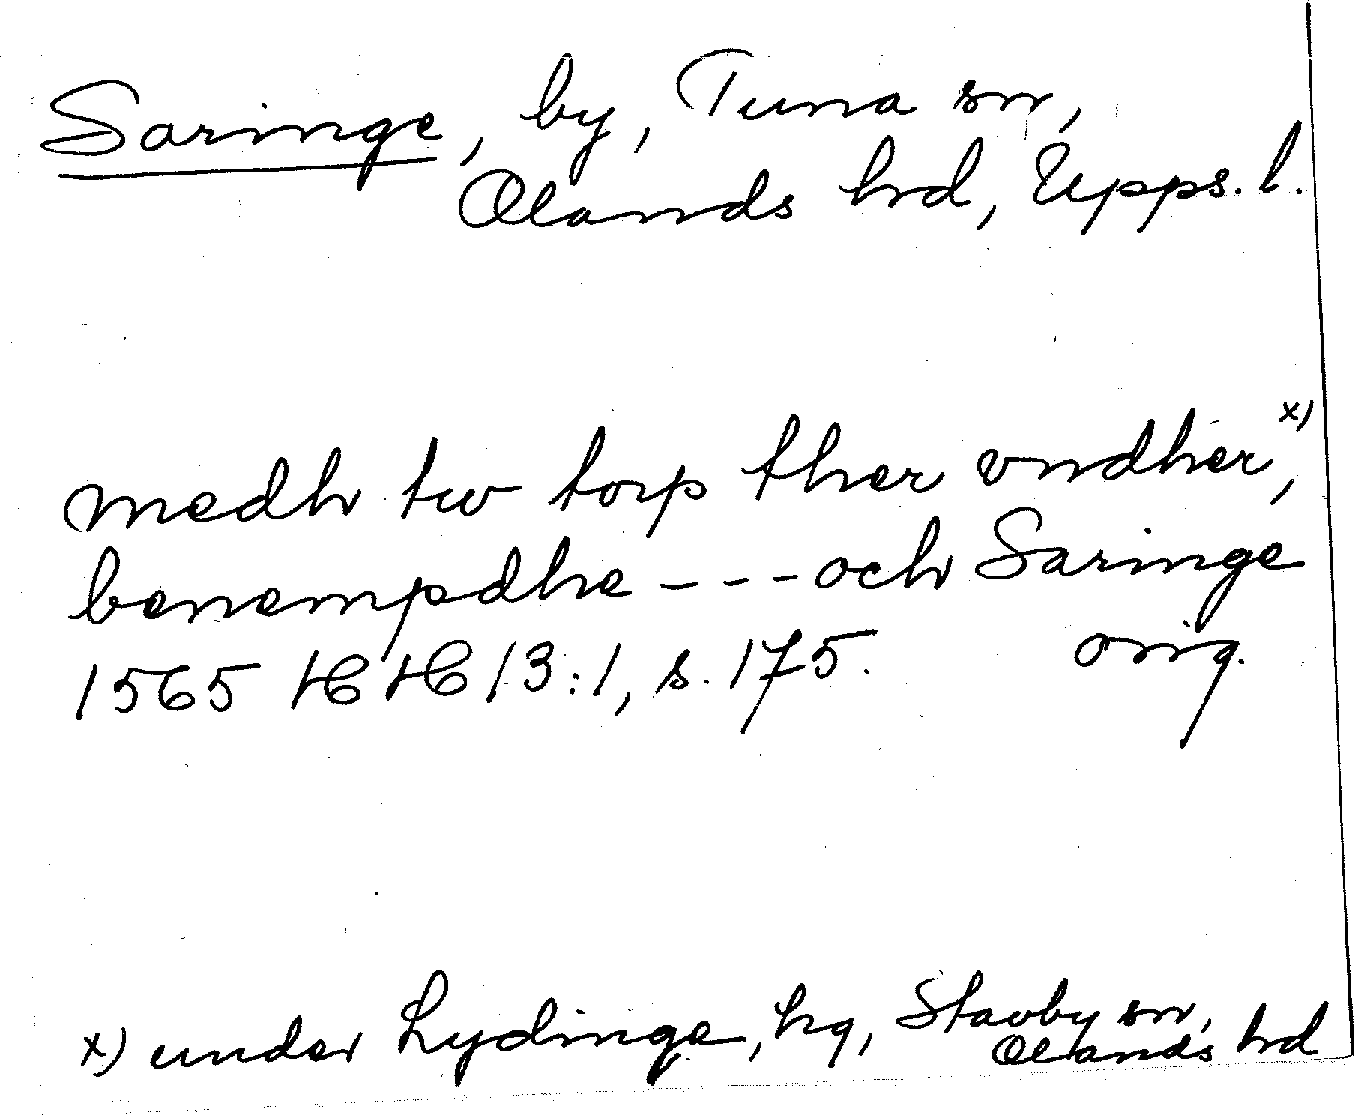 Saringe, by, Tuna sn,
Olands hrd, Upps. l.
medh tw torp ther vndher x),
benempdhe --- och Saringe
1565 HH 13:1, s. 175. orig.
x) under Lydinge, hg, Stavby sn,
Olands hrd